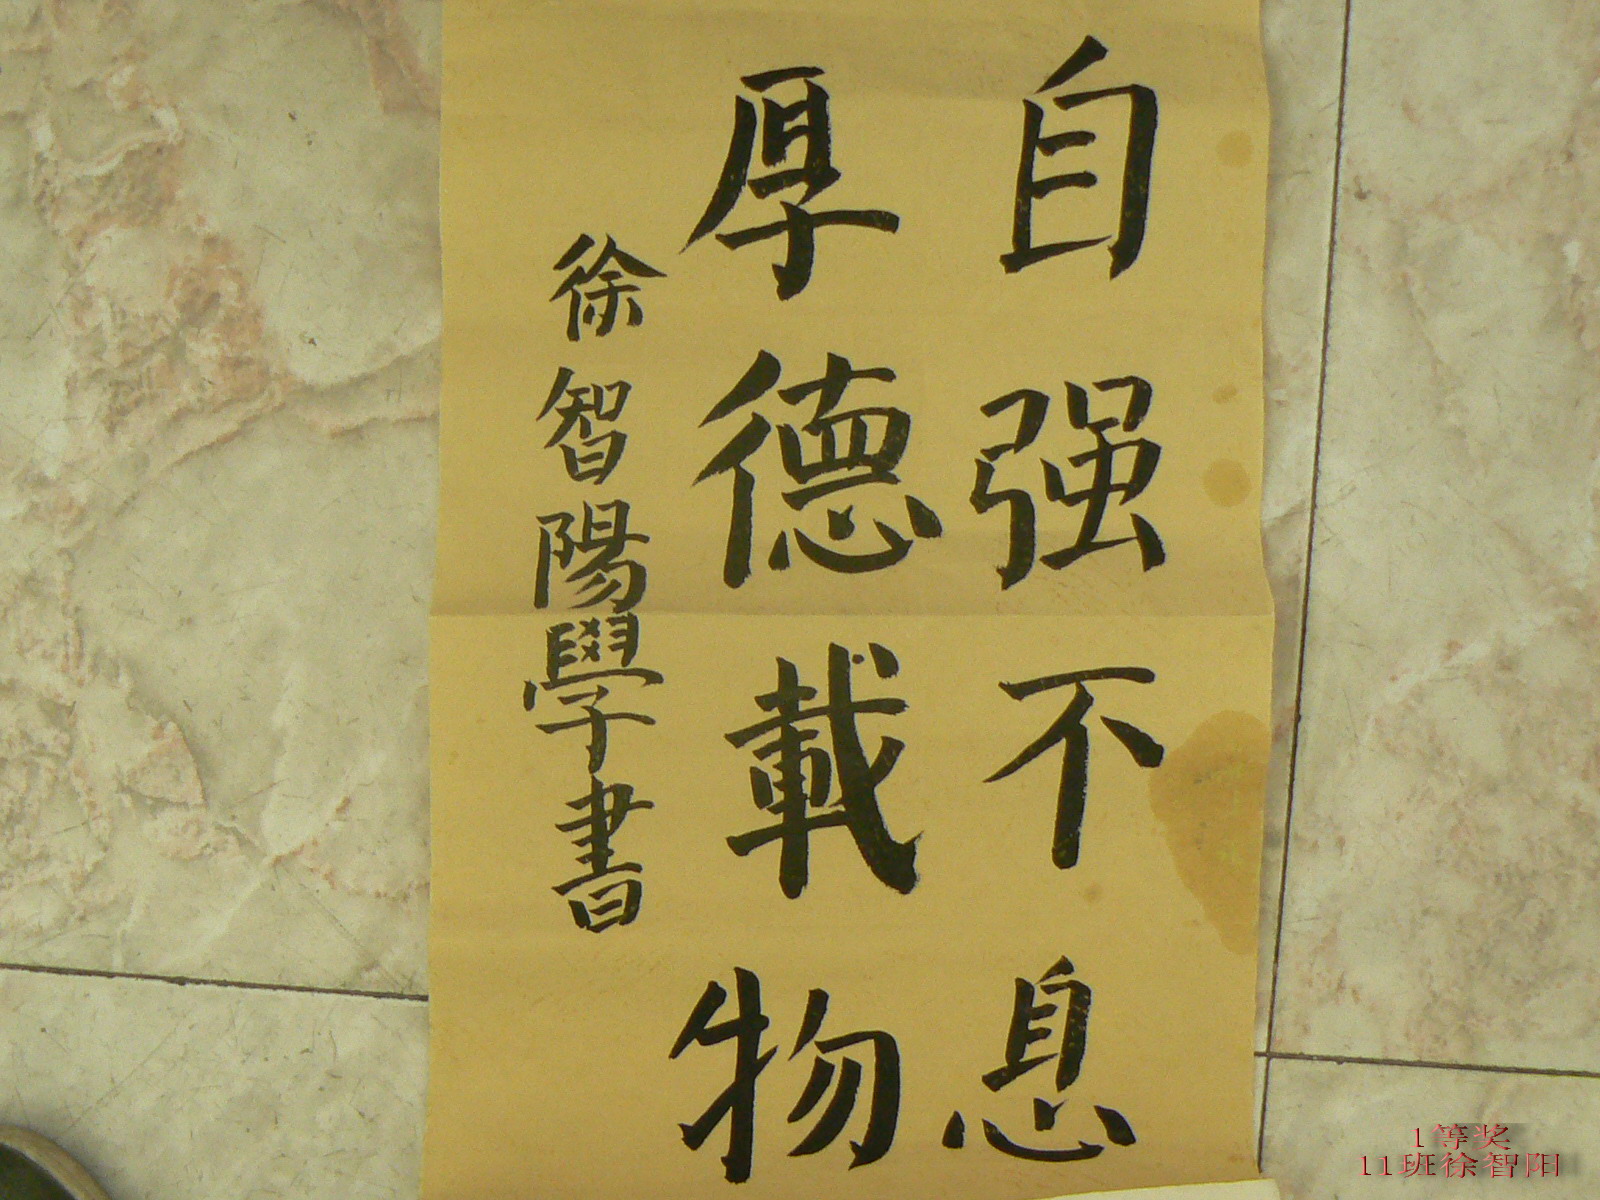 自强不息
厚德載物
徐智陽學書
1等奖
11班徐智阳